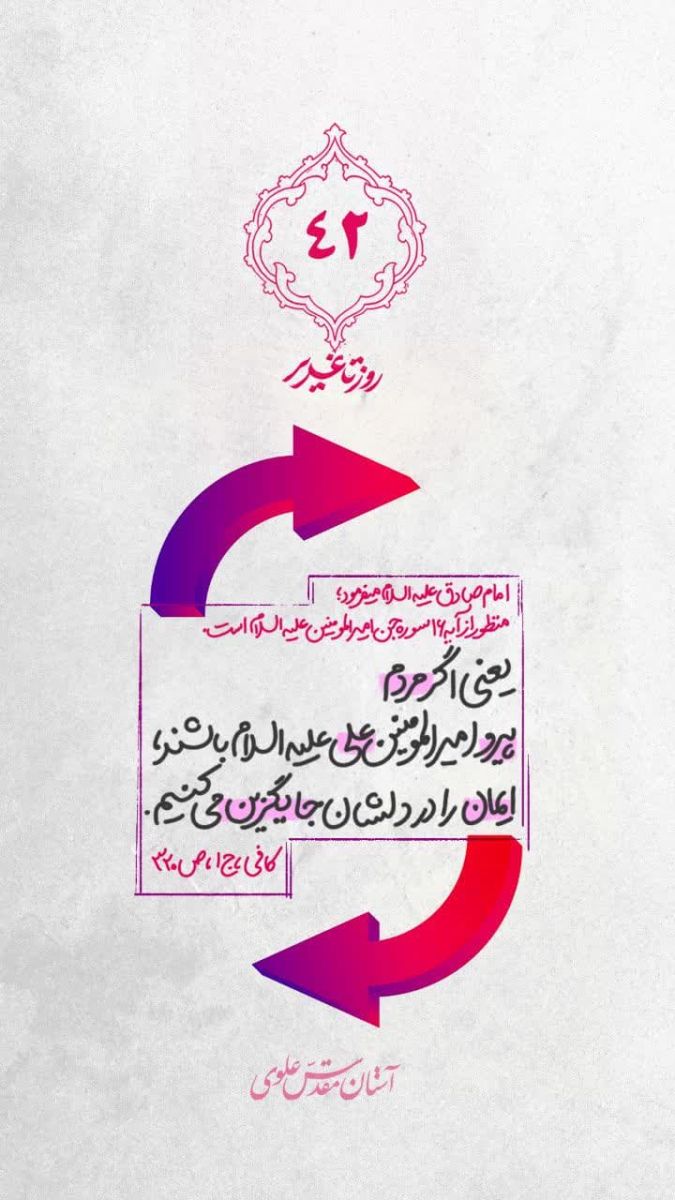 ۴۲
روز تا غدیر
امام صادق علیه السلام میفرمود؛
منظور از آیه ۱۶ سوره جن امیرالمومنین علیه السلام است.
یعنی اگر مردم
پیرو امیرالمومنین علی علیه السلام باشند،
ایمان را در دلشان جایگزین می کنیم.
کافی، ج۱، ص۲۲۰
آستان مقدس علوی